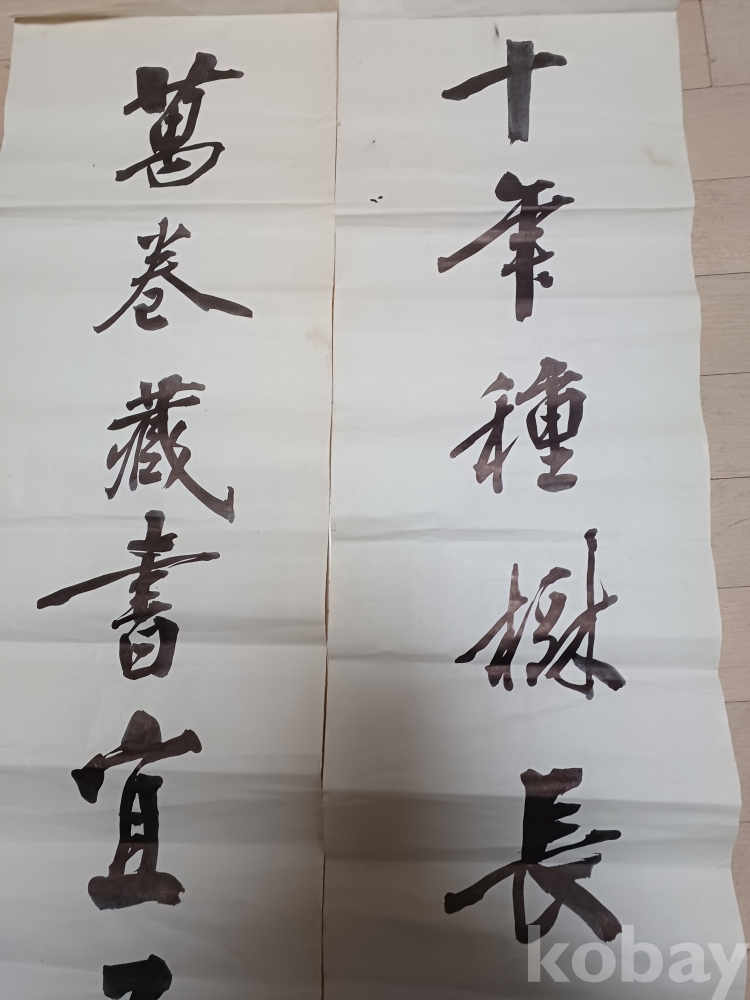 十年種樹長
萬卷藏書宜
kobay